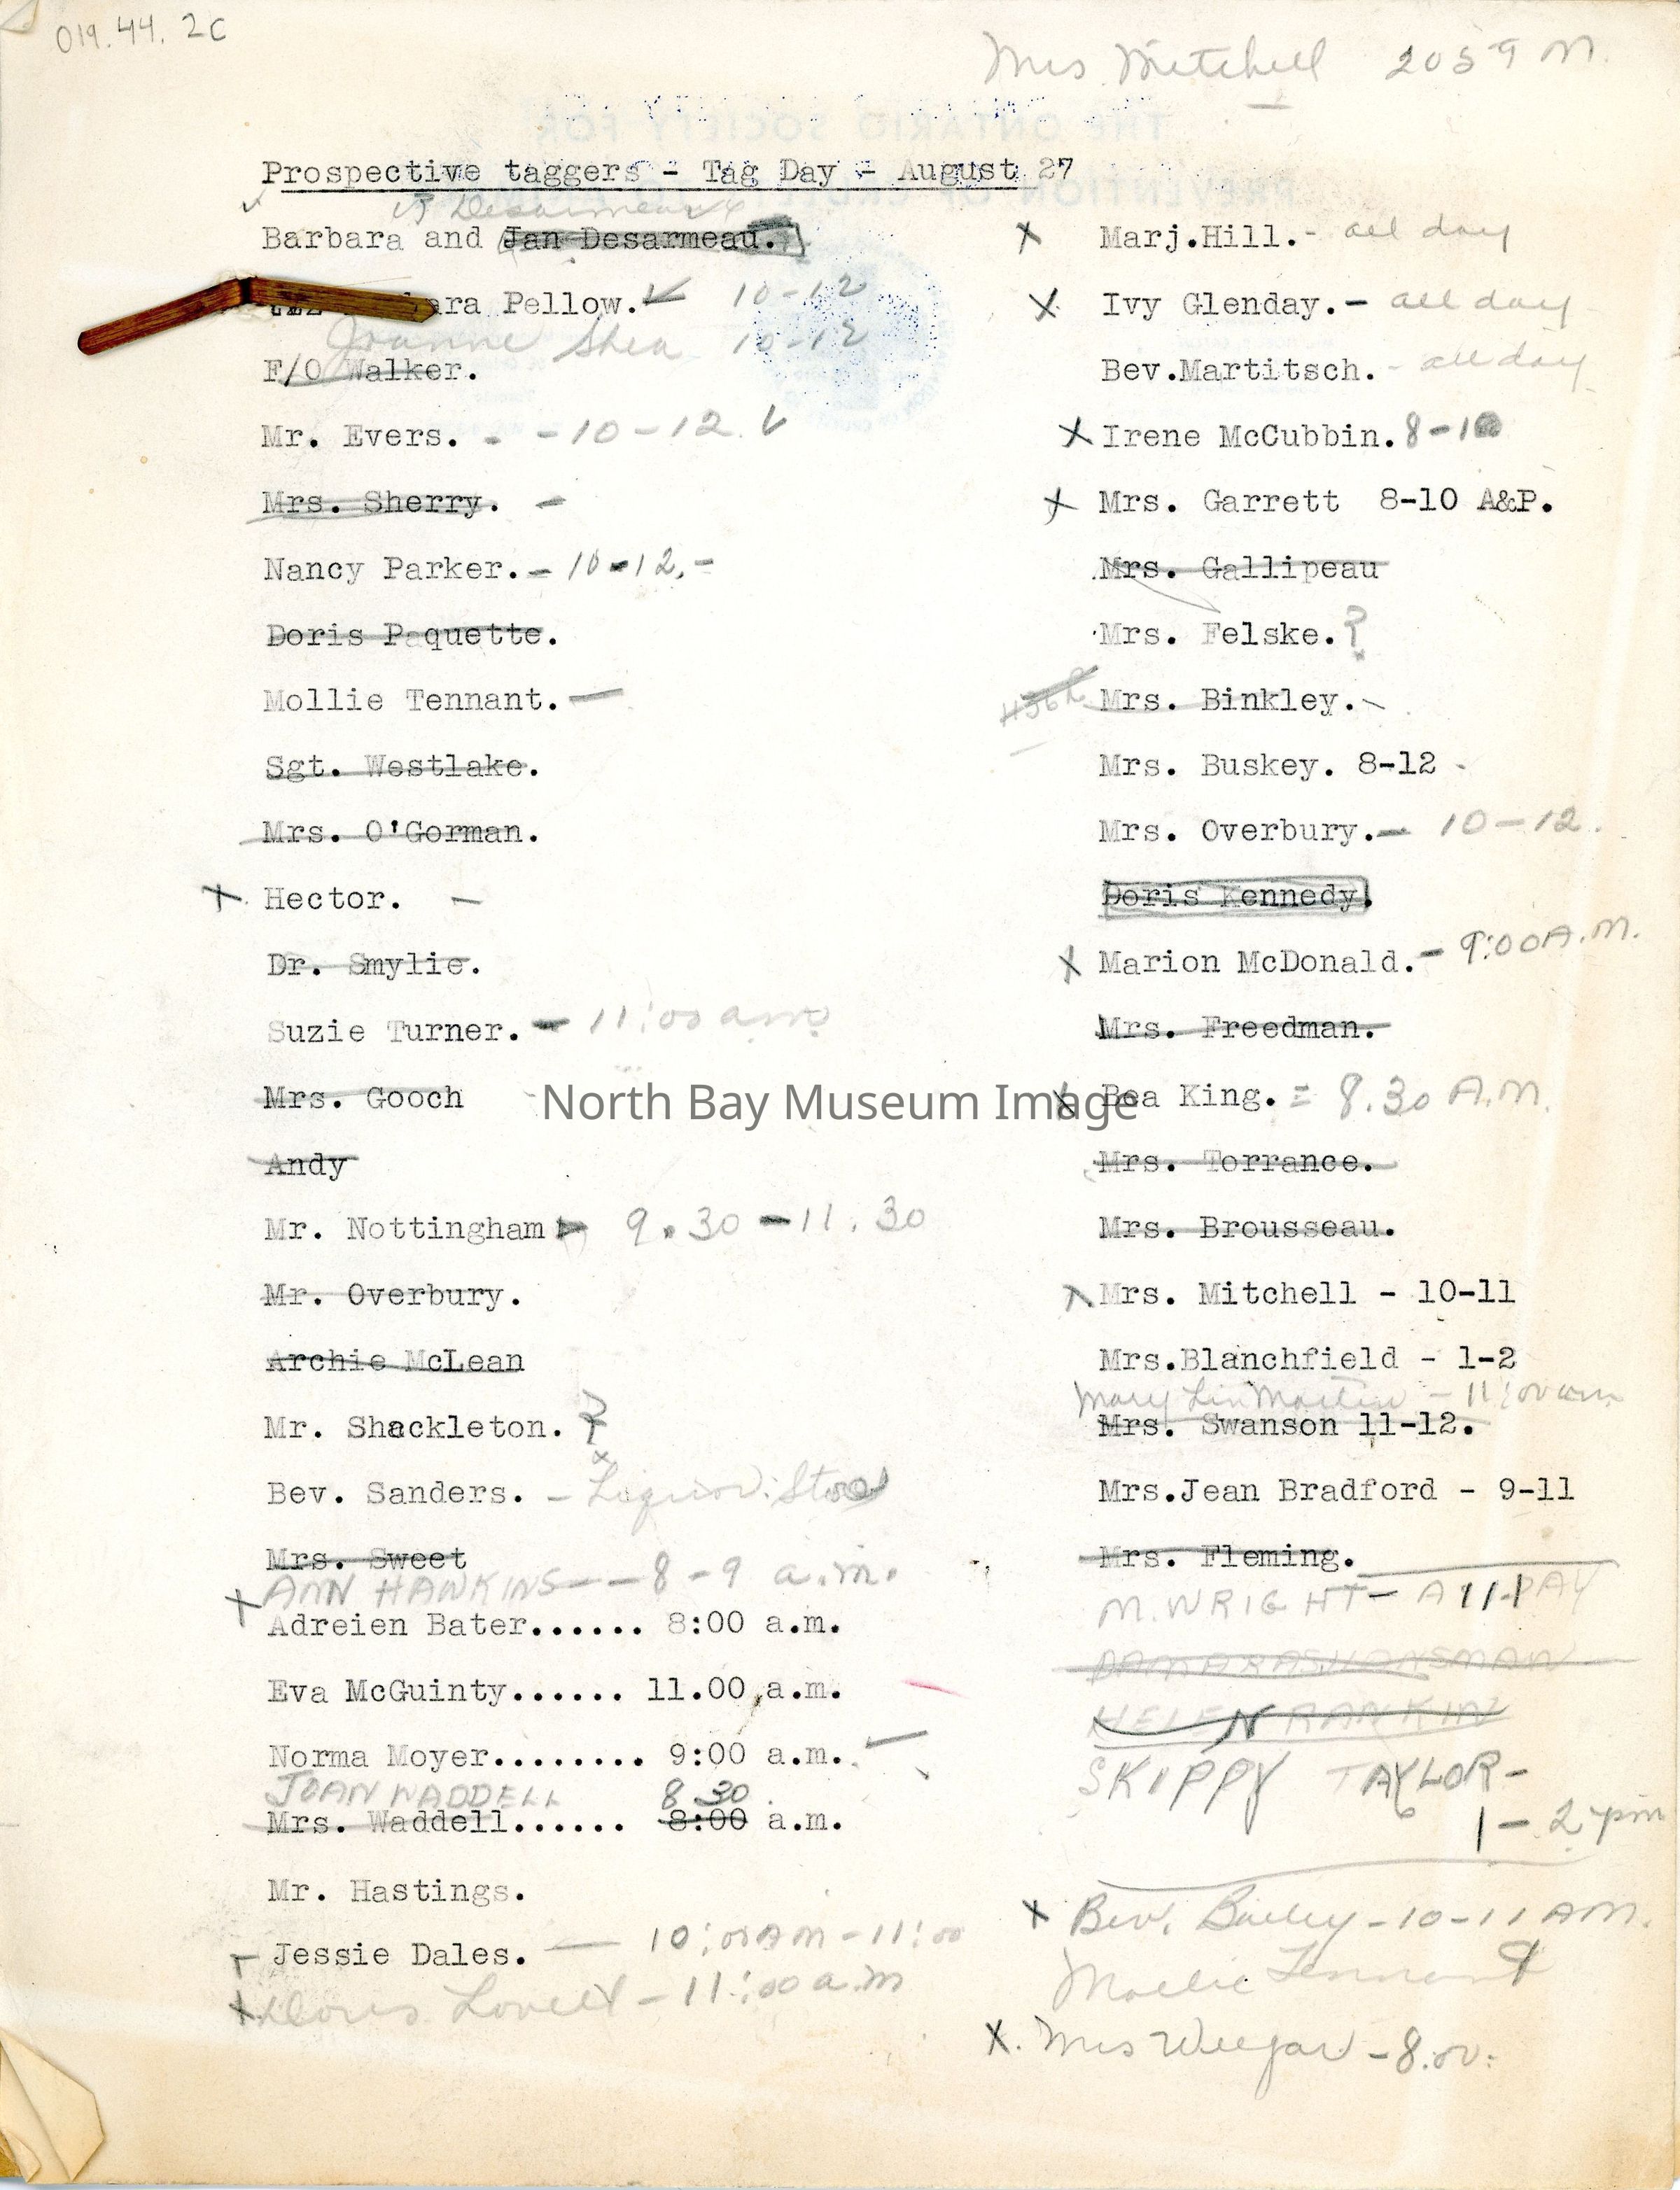 019.44.2C
Mrs Mitchell 2059 M.
THE ONTARIO SOCIETY FOR
PREVENTION OF CRUELTY
Prospective taggers - Tag Day - August 27
Desarmeaux
Barbara and Jan Desarmeau.
ara Pellow. 10-12
Joanne Shea 10-12
F/O Walker.
Mr. Evers. - -10-12.
Mrs. Sherry. -
Nancy Parker. - 10-12. -
Doris Paquette.
Mollie Tennant. -
Sgt. Westlake.
Mrs. O'Gorman.
X Hector. -
Dr. Smylie.
Suzie Turner. - 11:00 am
Mrs. Gooch
Andy
Mr. Nottingham 9.30 - 11.30
Mr. Overbury.
Archie McLean
Mr. Shackleton. ?
Bev. Sanders. - Liquor Store
Mrs. Sweet
ANN HAWKINS - - 8 - 9 a.m.
X Adreien Bater...... 8:00 a.m.
Eva McGuinty...... 11.00 a.m.
Norma Moyer........ 9:00 a.m.
JOAN WADDELL 8 30
Mrs. Waddell...... 8:00 a.m.
Mr. Hastings.
Jessie Dales. - 10:00 AM - 11:00
X Doris Lovell - 11:00 a.m
X Marj.Hill. - all day
X Ivy Glenday. - all day
Bev.Martitsch. - all day
X Irene McCubbin. 8-10
X Mrs. Garrett 8-10 A&P.
Mrs. Gallipeau
Mrs. Felske. ?
Mrs. Binkley. -
Mrs. Buskey. 8-12 -
Mrs. Overbury. - 10-12.
Doris Kennedy.
X Marion McDonald. - 9:00 A.M.
Mrs. Freedman.
X Bea King. = 8.30 A.M.
Mrs. Torrance.
Mrs. Brousseau.
X Mrs. Mitchell - 10-11
Mrs.Blanchfield - 1-2
Mary Lin Martin - 11:00 am
Mrs. Swanson 11-12.
Mrs.Jean Bradford - 9-11
Mrs. Fleming.
M. WRIGHT - All DAY
HELEN RANKIN
SKIPPY TAYLOR -
1 - 2 pm
X Bev. Bailey - 10-11 AM.
Mollie Tennant
X. Mrs Weegar - 8.00.
North Bay Museum Image